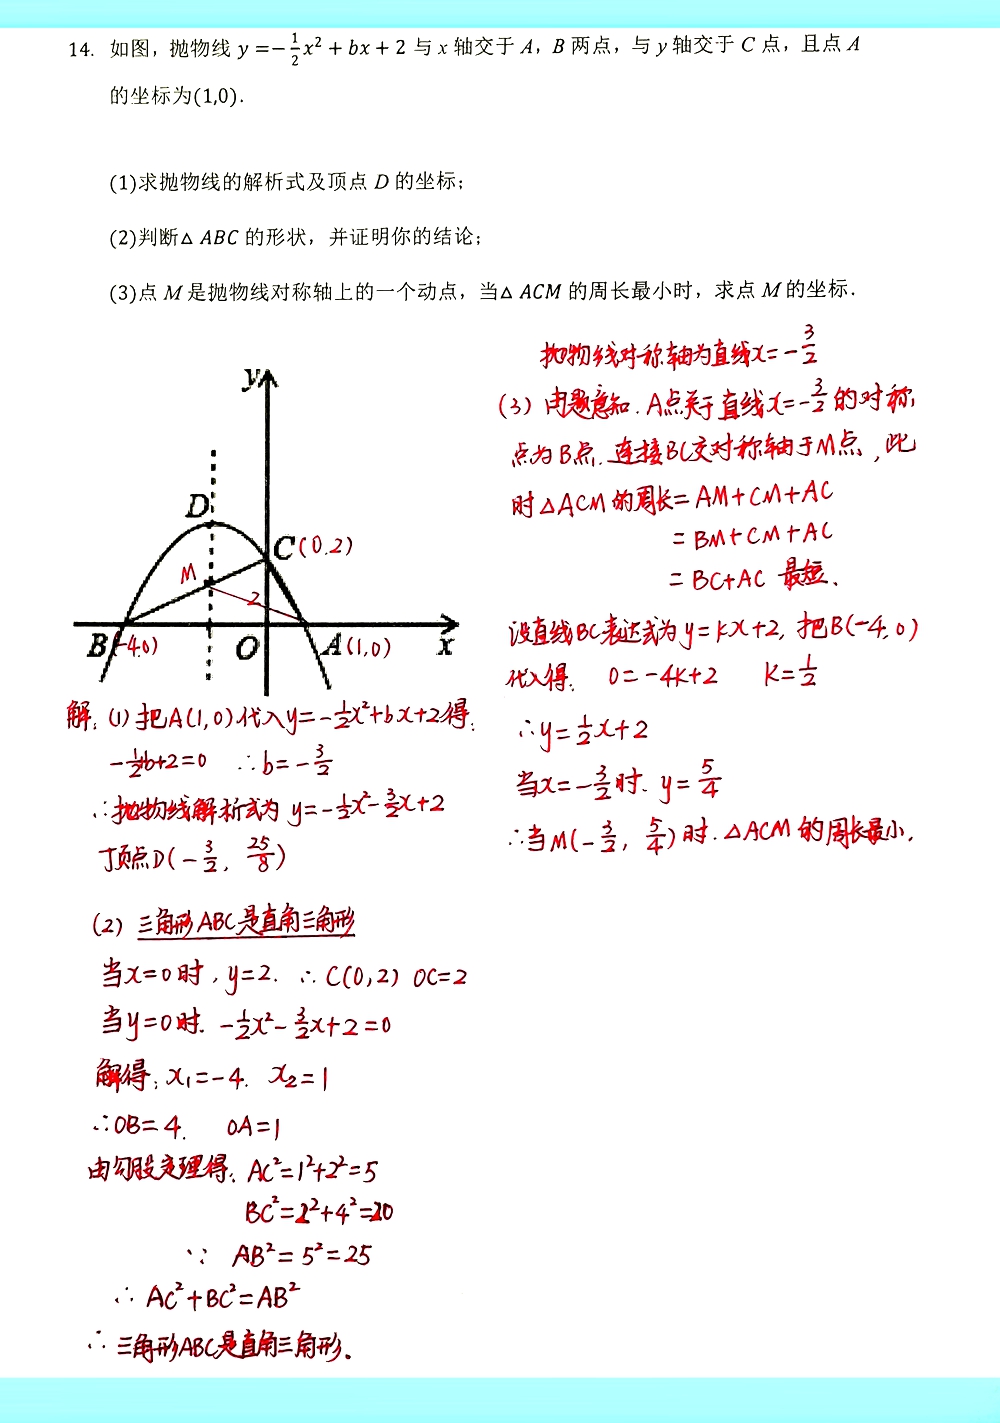 14. 如图，抛物线 y =− 1/2 x² + bx + 2 与 x 轴交于 A，B 两点，与 y 轴交于 C 点，且点 A
的坐标为(1,0).
(1)求抛物线的解析式及顶点 D 的坐标；
(2)判断△ ABC 的形状，并证明你的结论；
(3)点 M 是抛物线对称轴上的一个动点，当△ ACM 的周长最小时，求点 M 的坐标.
y
D
C(0.2)
M
2
B(-4.0)
O
A(1,0)
x
解: (1) 把A(1,0)代入y=-1/2x²+bx+2得:
-1/2+b+2=0 ∴b=-3/2
∴抛物线解析式为 y=-1/2x²-3/2x+2
顶点D(-3/2, 25/8)
(2) 三角形ABC是直角三角形
当x=0时, y=2. ∴ C(0,2) OC=2
当y=0时. -1/2x²-3/2x+2=0
解得: x₁=-4. x₂=1
∴OB=4. OA=1
由勾股定理得: AC²=1²+2²=5
BC²=2²+4²=20
∵ AB²=5²=25
∴ AC²+BC²=AB²
∴ 三角形ABC是直角三角形.
抛物线对称轴为直线x=-3/2
(3) 由题意知. A点关于直线x=-3/2的对称
点为B点. 连接BC交对称轴于M点, 此
时△ACM的周长=AM+CM+AC
=BM+CM+AC
=BC+AC 最短.
设直线BC表达式为y=kx+2, 把B(-4,0)
代入得: 0=-4k+2 k=1/2
∴y=1/2x+2
当x=-3/2时. y=5/4
∴当M(-3/2, 5/4)时. △ACM的周长最小.